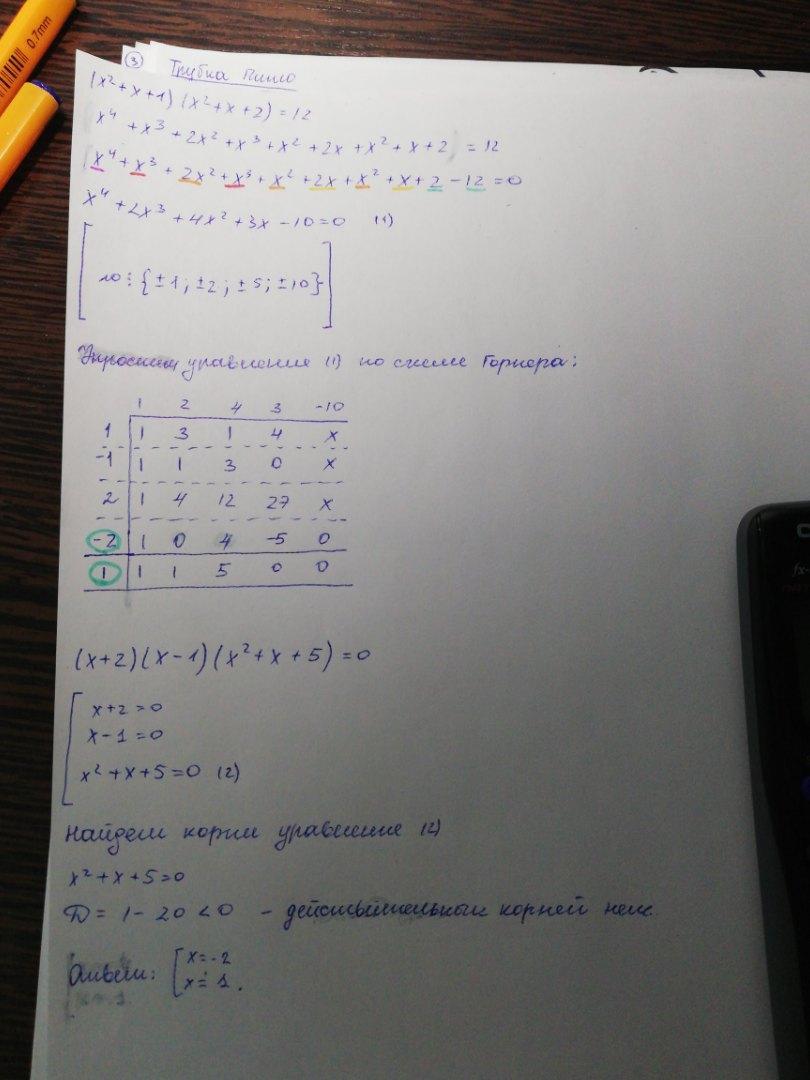 0.7mm
③ Трубка Пито
(x²+x+1)(x²+x+2)=12
x⁴+x³+2x²+x³+x²+2x+x²+x+2 =12
x⁴+x³+2x²+x³+x²+2x+x²+x+2-12=0
x⁴+2x³+4x²+3x-10=0 (1)
10⋮{±1; ±2; ±5; ±10}
Упростим уравнение (1) по схеме Горнера:
1 2 4 3 -10
1 1 3 1 4 x
-1 1 1 3 0 x
2 1 4 12 27 x
-2 1 0 4 -5 0
1 1 1 5 0 0
(x+2)(x-1)(x²+x+5)=0
x+2=0
x-1=0
x²+x+5=0 (2)
Найдем корни уравнение (2)
x²+x+5=0
D=1-20<0 - корней нет.
Ответ: [x=-2
x=1.
fx-